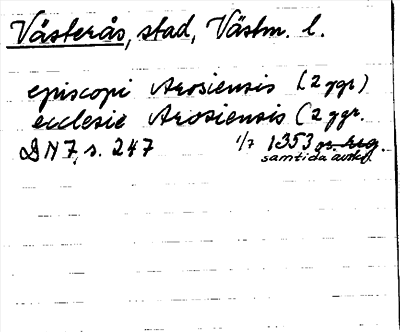 Västerås, stad, Västm. l.
episcopi Arosiensis (2 ggr)
ecclesie Arosiensis (2 ggr.
DN 7, s. 247 1/7 1353 or. reg.
samtida avskr.